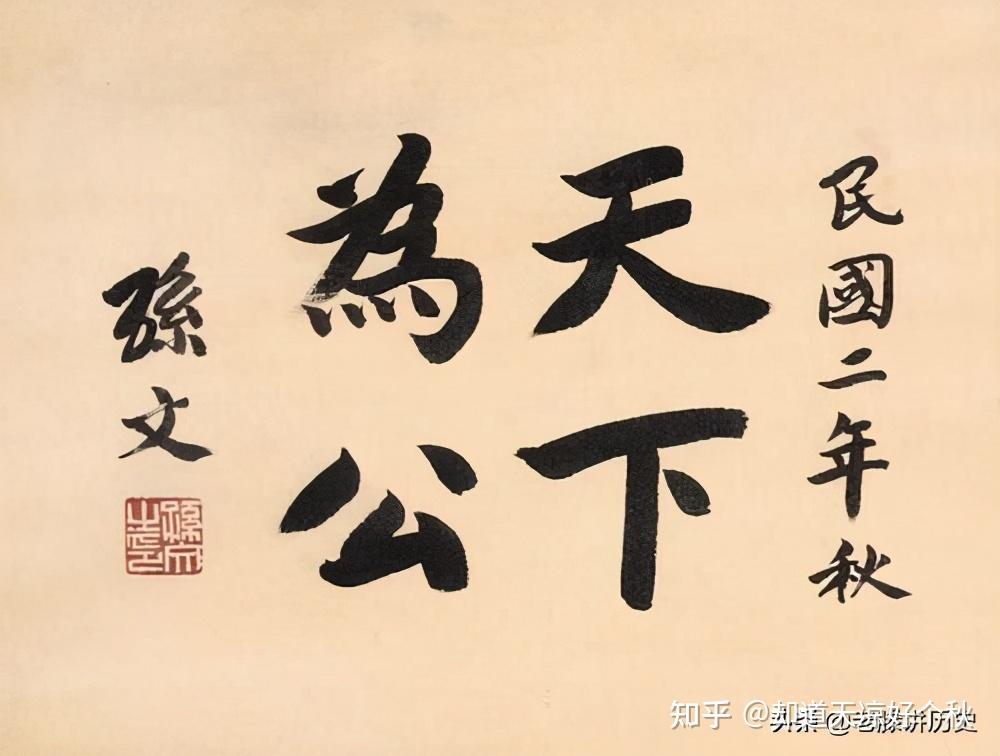 民國二年秋
天下
為公
孫文
孫文之印
知乎 @却道天凉好个秋
头条 @老滕讲历史